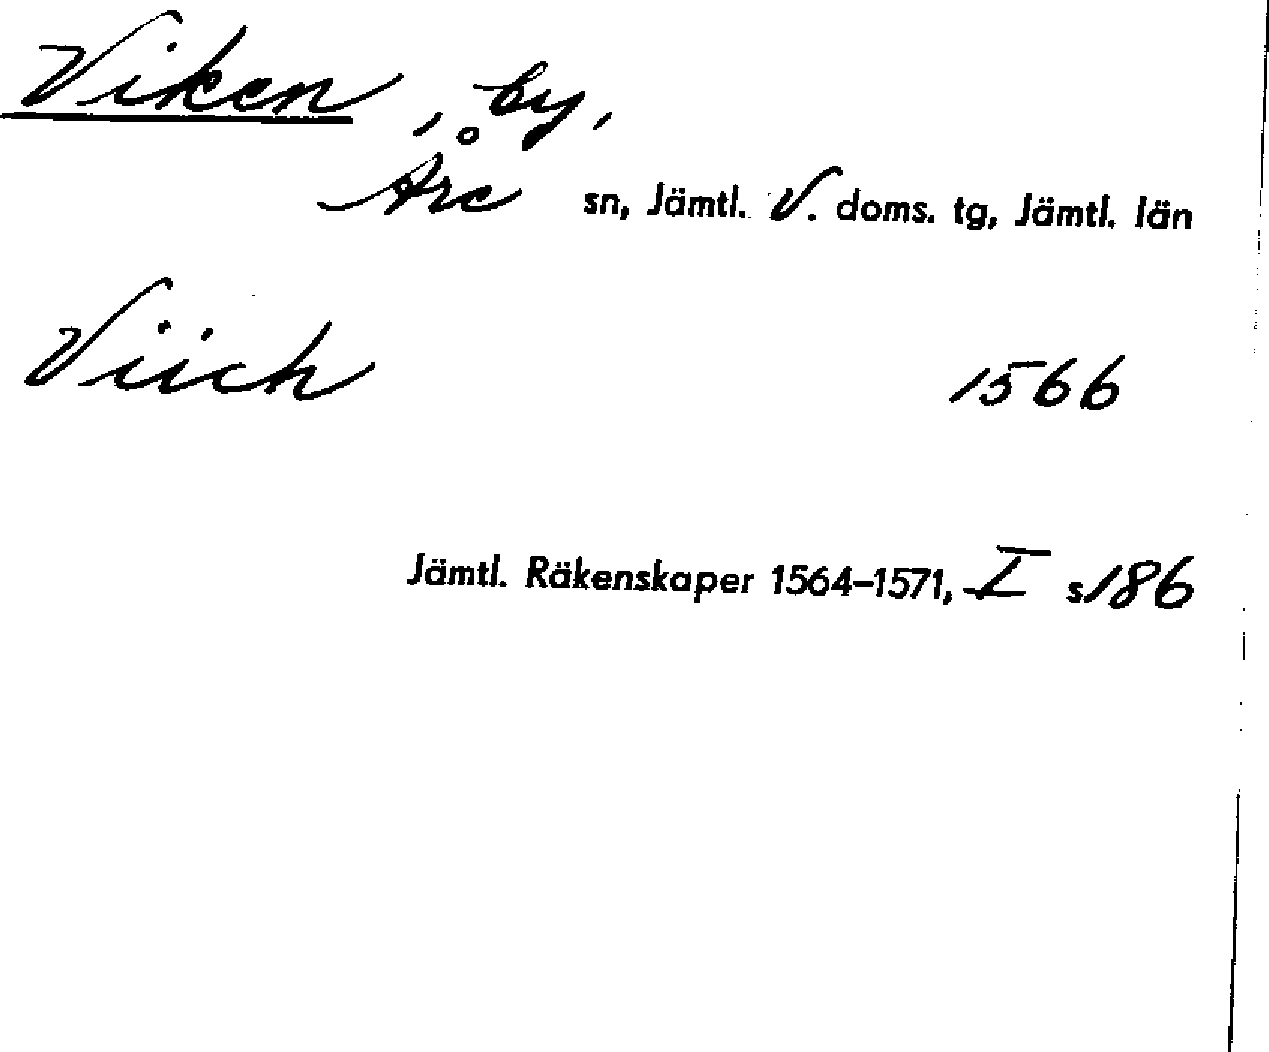 Viken, by,
Åre sn, Jämtl. V. doms. tg, Jämtl. län
Viich 1566
Jämtl. Räkenskaper 1564-1571, I s186